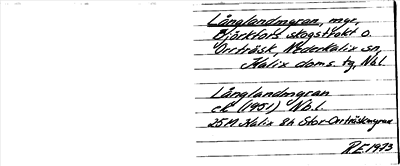 Långlandmyran, myr,
Björkfors skogstrakt o.
Orrträsk, Nederkalix sn,
Kalix doms. tg, Nbl.
Långlandmyran
ek (1951) Nbl.
25M Kalix 8h Stor-Orrträskmyran
RE 1973